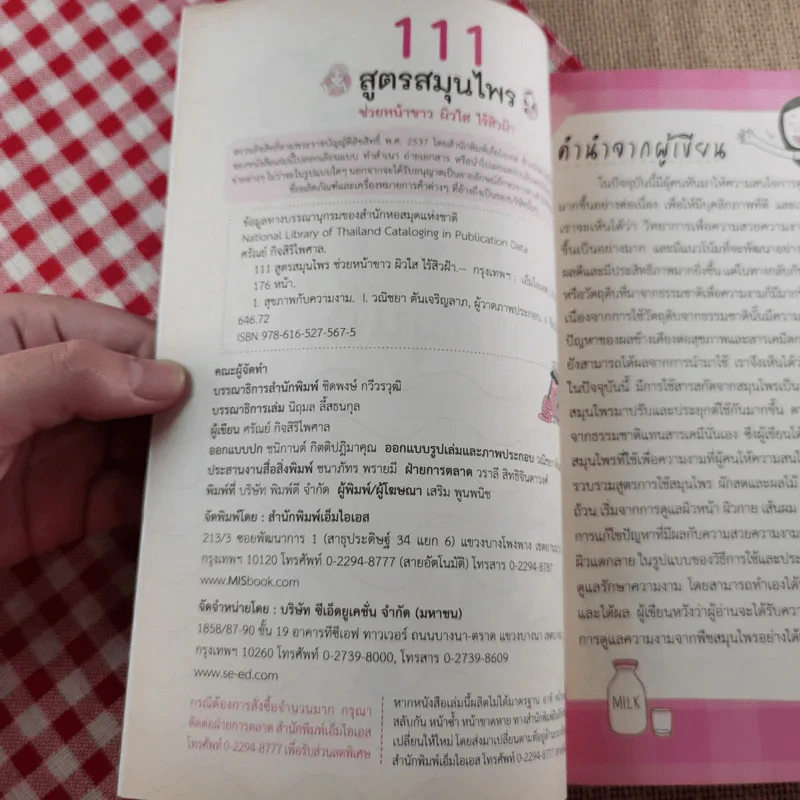 111
สูตรสมุนไพร
ช่วยหน้าขาว ผิวใส ไร้สิวฝ้า
สงวนลิขสิทธิ์ตามพระราชบัญญัติลิขสิทธิ์ พ.ศ. 2537 โดยสำนักพิมพ์เอ็มไอเอส
ของหนังสือเล่มนี้ไปลอกเลียนแบบ ทำสำเนา ถ่ายเอกสาร หรือนำไปเผยแพร่
ข่ายต่างๆ ไม่ว่าจะในรูปแบบใดๆ นอกจากจะได้รับอนุญาตเป็นลายลักษณ์อักษร
ชื่อผลิตภัณฑ์และเครื่องหมายการค้าต่างๆ ที่อ้างถึงเป็นของบริษัทนั้นๆ
ข้อมูลทางบรรณานุกรมของสำนักหอสมุดแห่งชาติ
National Library of Thailand Cataloging in Publication Data
ศรัณย์ กิจสิริไพศาล.
111 สูตรสมุนไพร ช่วยหน้าขาว ผิวใส ไร้สิวฝ้า.-- กรุงเทพฯ : เอ็มไอเอส,
176 หน้า.
1. สุขภาพกับความงาม. I. วณิชยา ตันเจริญลาภ, ผู้วาดภาพประกอบ.
646.72
ISBN 978-616-527-567-5
คณะผู้จัดทำ
บรรณาธิการสำนักพิมพ์ ชิดพงษ์ กวีวรวุฒิ
บรรณาธิการเล่ม นิฤมล ลี้สธนกุล
ผู้เขียน ศรัณย์ กิจสิริไพศาล
ออกแบบปก ชนิกานต์ กิตติปฏิมาคุณ ออกแบบรูปเล่มและภาพประกอบ วณิชยา
ประสานงานสื่อสิ่งพิมพ์ ชนาภัทร พรายมี ฝ่ายการตลาด วราลี สิทธิจินดาวงศ์
พิมพ์ที่ บริษัท พิมพ์ดี จำกัด ผู้พิมพ์/ผู้โฆษณา เสริม พูนพนิช
จัดพิมพ์โดย : สำนักพิมพ์เอ็มไอเอส
213/3 ซอยพัฒนาการ 1 (สาธุประดิษฐ์ 34 แยก 6) แขวงบางโพงพาง เขตยานนาวา
กรุงเทพฯ 10120 โทรศัพท์ 0-2294-8777 (สายอัตโนมัติ) โทรสาร 0-2294-8787
www.MISbook.com
จัดจำหน่ายโดย : บริษัท ซีเอ็ดยูเคชั่น จำกัด (มหาชน)
1858/87-90 ชั้น 19 อาคารทีซีเอฟ ทาวเวอร์ ถนนบางนา-ตราด แขวงบางนา เขตบางนา
กรุงเทพฯ 10260 โทรศัพท์ 0-2739-8000, โทรสาร 0-2739-8609
www.se-ed.com
กรณีต้องการสั่งซื้อจำนวนมาก กรุณา
ติดต่อฝ่ายการตลาด สำนักพิมพ์เอ็มไอเอส
โทรศัพท์ 0-2294-8777 เพื่อรับส่วนลดพิเศษ
หากหนังสือเล่มนี้ผลิตไม่ได้มาตรฐาน อาทิ
สลับกัน หน้าซ้ำ หน้าขาดหาย ทางสำนักพิมพ์
เปลี่ยนให้ใหม่ โดยส่งมาเปลี่ยนตามที่อยู่ด้านบน
สำนักพิมพ์เอ็มไอเอส โทรศัพท์ 0-2294-8777
คำนำจากผู้เขียน
ในปัจจุบันนี้มีผู้คนหันมาให้ความสนใจการ
มากขึ้นอย่างต่อเนื่อง เพื่อให้มีบุคลิกภาพที่ดี และ
เราจะเห็นได้ว่า วิทยาการเพื่อความสวยความงาม
ขึ้นเป็นอย่างมาก และมีแนวโน้มที่จะพัฒนาอย่าง
ผลดีและมีประสิทธิภาพมากยิ่งขึ้น แต่ในทางกลับกัน
หรือวัตถุดิบที่มาจากธรรมชาติเพื่อความงามก็มีมาก
เนื่องจากการใช้วัตถุดิบจากธรรมชาตินั้นมีความ
ปัญหาของผลข้างเคียงต่อสุขภาพและสารเคมีตก
ยังสามารถได้ผลจากการนำมาใช้ เราจึงเห็นได้ว่า
ในปัจจุบันนี้ มีการใช้สารสกัดจากสมุนไพรเป็น
สมุนไพรมาปรับและประยุกต์ใช้กันมากขึ้น
จากธรรมชาติแทนสารเคมีนั่นเอง ซึ่งผู้เขียนได้
สมุนไพรที่ใช้เพื่อความงามที่ผู้คนให้ความสนใจ
รวบรวมสูตรการใช้สมุนไพร ผักสดและผลไม้
ถ้วน เริ่มจากการดูแลผิวหน้า ผิวกาย เส้นผม
การแก้ไขปัญหาที่มีผลกับความสวยความงาม
ผิวแตกลาย ในรูปแบบของวิธีการใช้และ
ดูแลรักษาความงาม โดยสามารถทำเองได้
และได้ผล ผู้เขียนหวังว่าผู้อ่านจะได้รับความ
การดูแลความงามจากพืชสมุนไพรอย่างได้
MILK